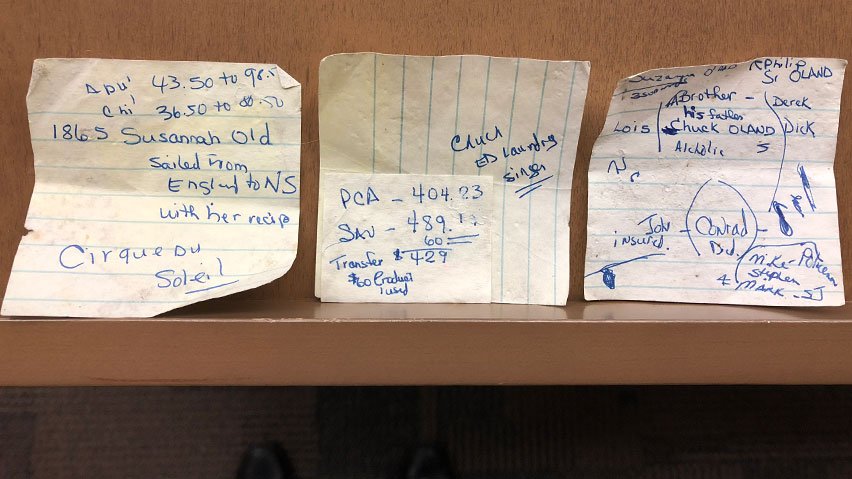 Adu' 43.50 to 98.5
Chi' 36.50 to 80.50
1865 Susannah Old
Sailed From
England to NS
with her recip
Cirque Du
Soleil
Chuck
ED Laundry
Singer
PCA - 404.23
SAV - 489.
60
Transfer $429
$60 Product
used
Philip
Sr OLAND
A Brother -
his father
Lois Chuck OLAND
Alcholic 5
Derek
Dick
Jon
insurd.
Conrad
Mike
Stephen
4 MARK - SJ